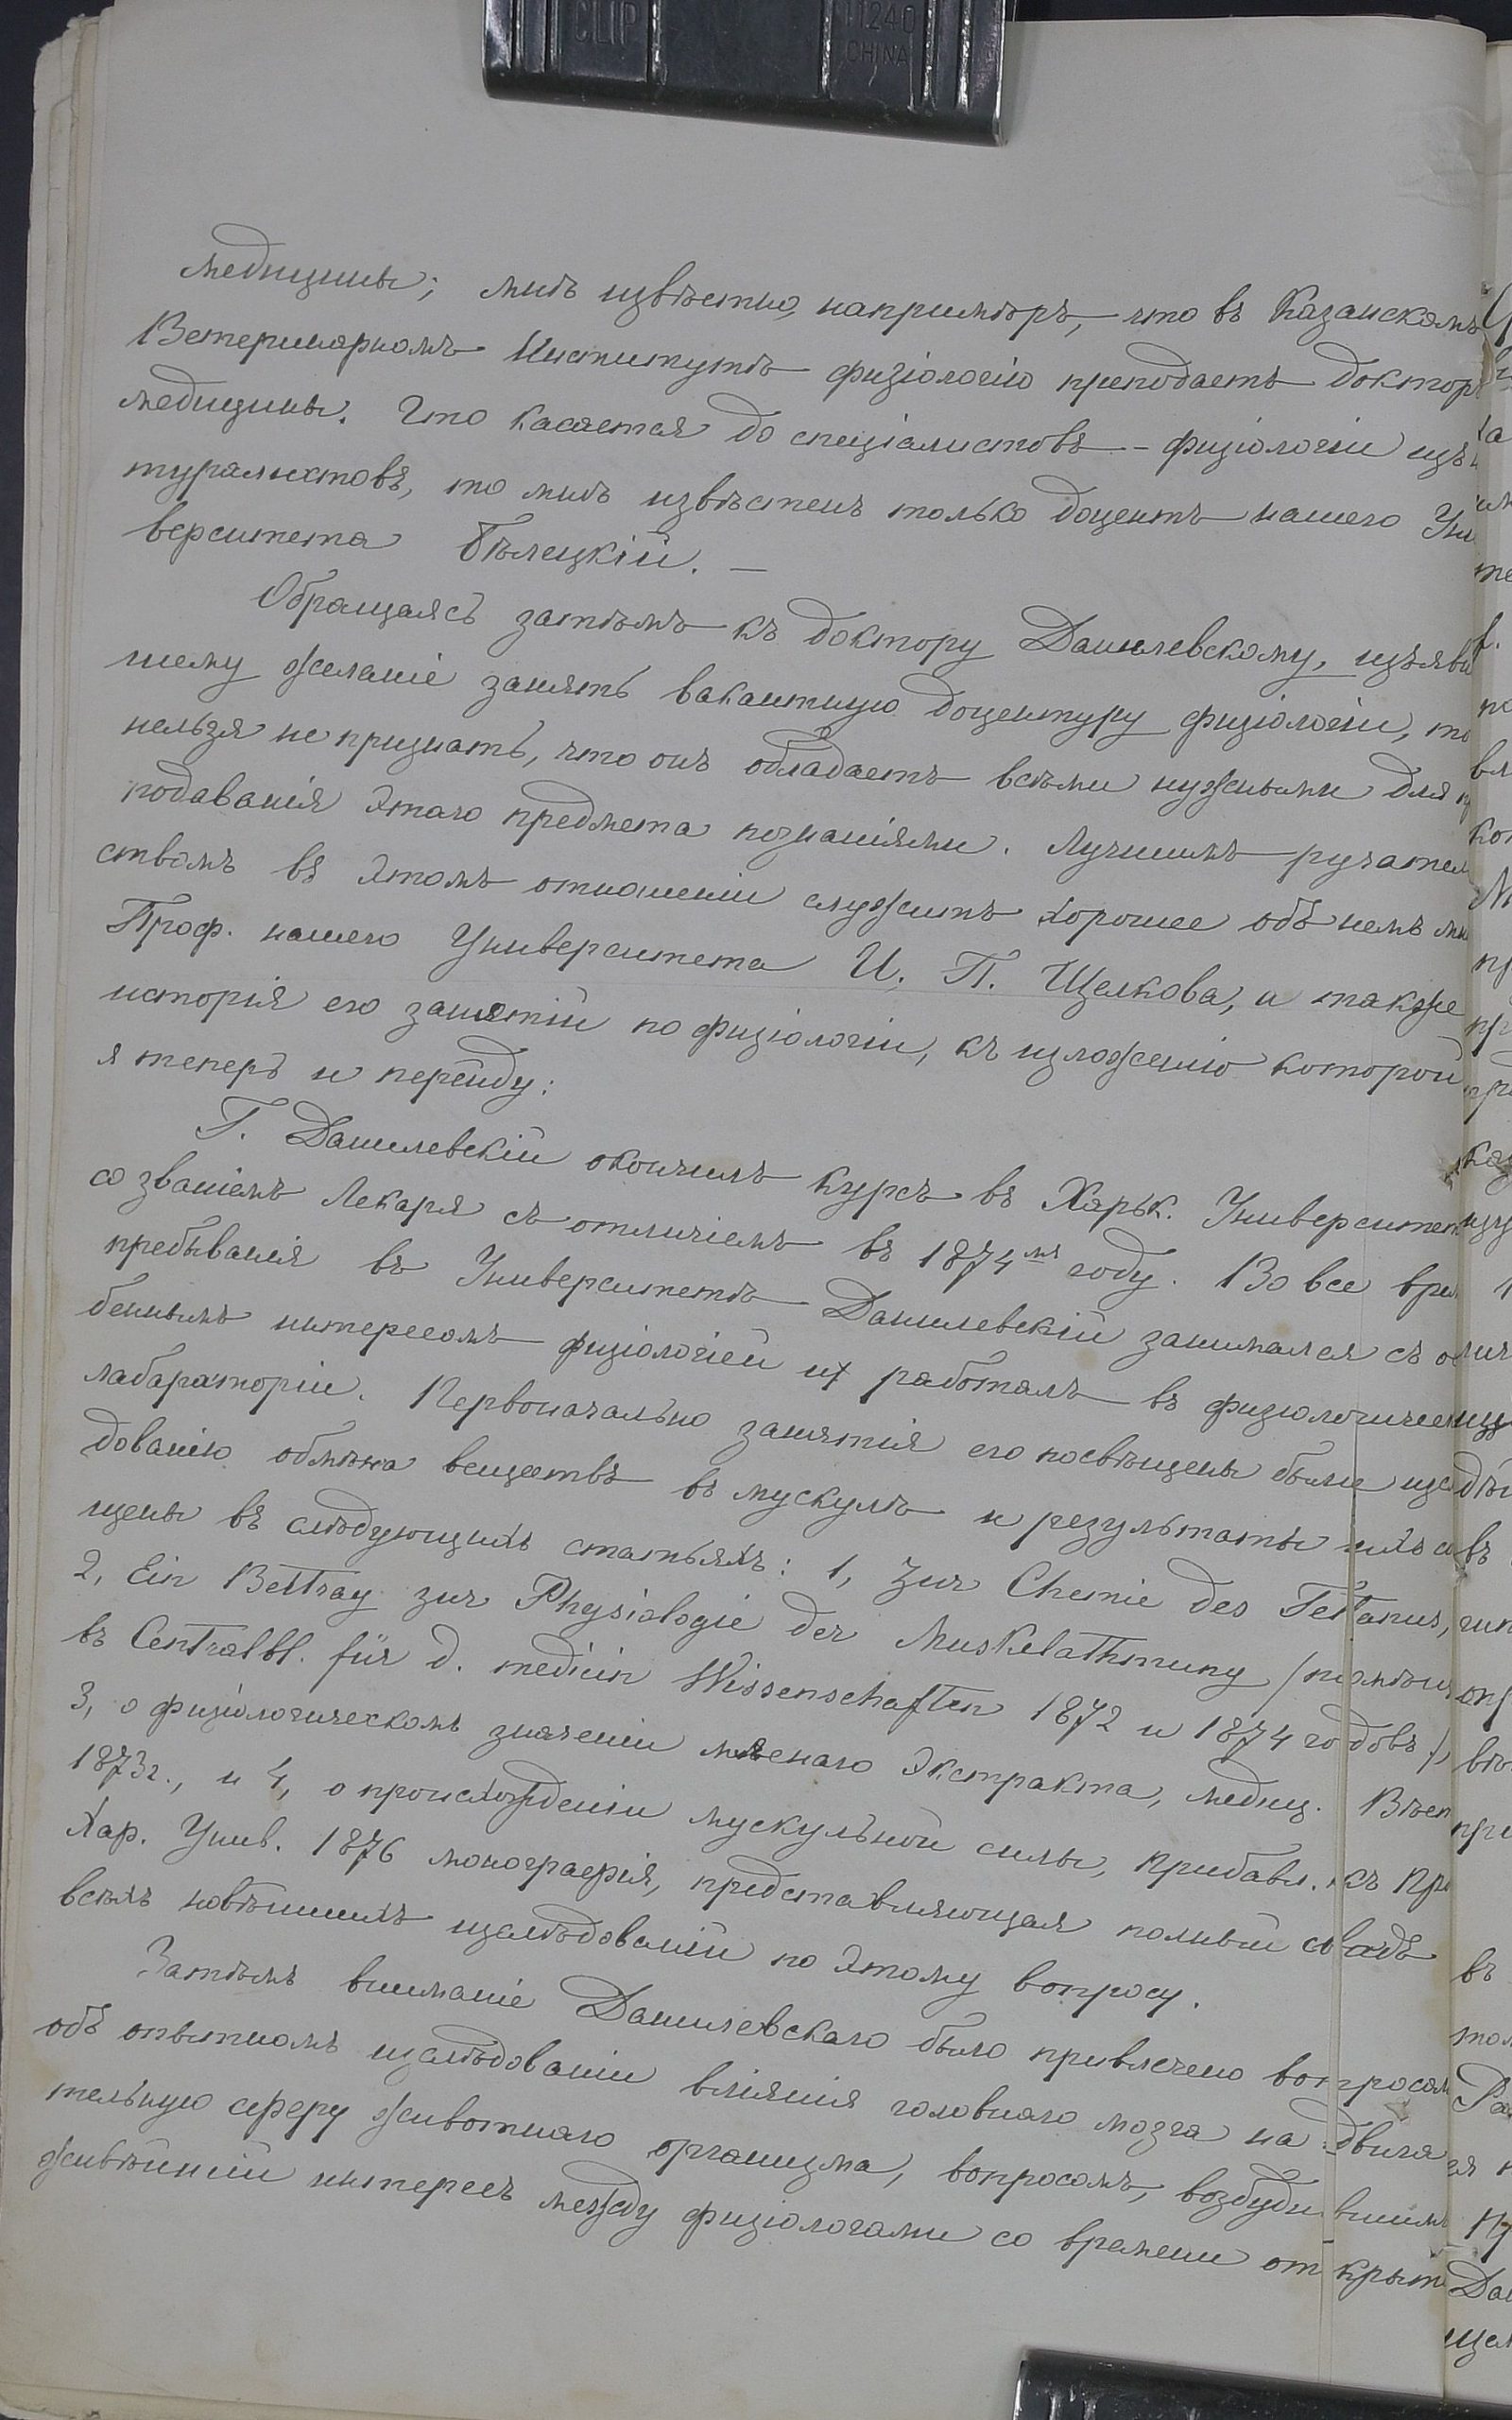 CLIP
11240
CHINA
медицины; мнѣ извѣстно, напримѣръ, что въ Казанскомъ
Ветеринарномъ Институтѣ физіологію преподаетъ докторъ
медицины. Что касается до спеціалистовъ - физіологіи изъ
туралистовъ, то мнѣ извѣстенъ только доцентъ нашего Уни
верситета Бѣлецкій. —
Обращаясь затѣмъ къ доктору Данилевскому, изъяви
шему желаніе занять вакантную доцентуру физіологіи, то
нельзя не признать, что онъ обладаетъ всѣми нужными для п
подаванія этаго предмета познаніями. Лучшимъ ручатель
ствомъ въ этомъ отношеніи служитъ хорошее объ немъ мн
Проф. нашего Университета И. П. Щелкова, а также
исторія его занятій по физіологіи, къ изложенію которой
я теперь и перейду:
Г. Данилевскій окончилъ курсъ въ Харьк. Университет
со званіемъ Лекаря съ отличіемъ въ 1874мъ году. Во все врем
пребыванія въ Университетѣ Данилевскій занимался съ осо
беннымъ интересомъ физіологіей и работалъ въ физіологическ
лабараторіи. Первоначально занятія его посвѣщены были изслѣ
дованію обмѣна веществъ въ мускулѣ и результаты ихъ
щены въ слѣдующихъ статьяхъ: 1, Zur Chemie des Tetanus,
2, Ein Beitrag zur Physiologie der Muskelathmung /помѣщ
въ Centralbl. für d. medicin Wissenschaften 1872 и 1874 годовъ/,
3, о физіологическомъ значеніи мяснаго экстракта, медиц. Вѣст
1873г., и 4, о происхожденіи мускульной силы, Прибавл. къ Пр
Хар. Унив. 1876 монографія, представляющая полный сводъ
всѣхъ новѣйшихъ изслѣдованій по этому вопросу.
Затѣмъ вниманіе Данилевскаго было привлечено вопросом
объ опытномъ изслѣдованіи вліянія головнаго мозга на двига
тельную сферу животнаго организма, вопросомъ, возбудившимъ
живѣйшій интересъ между физіологами со времени открыт